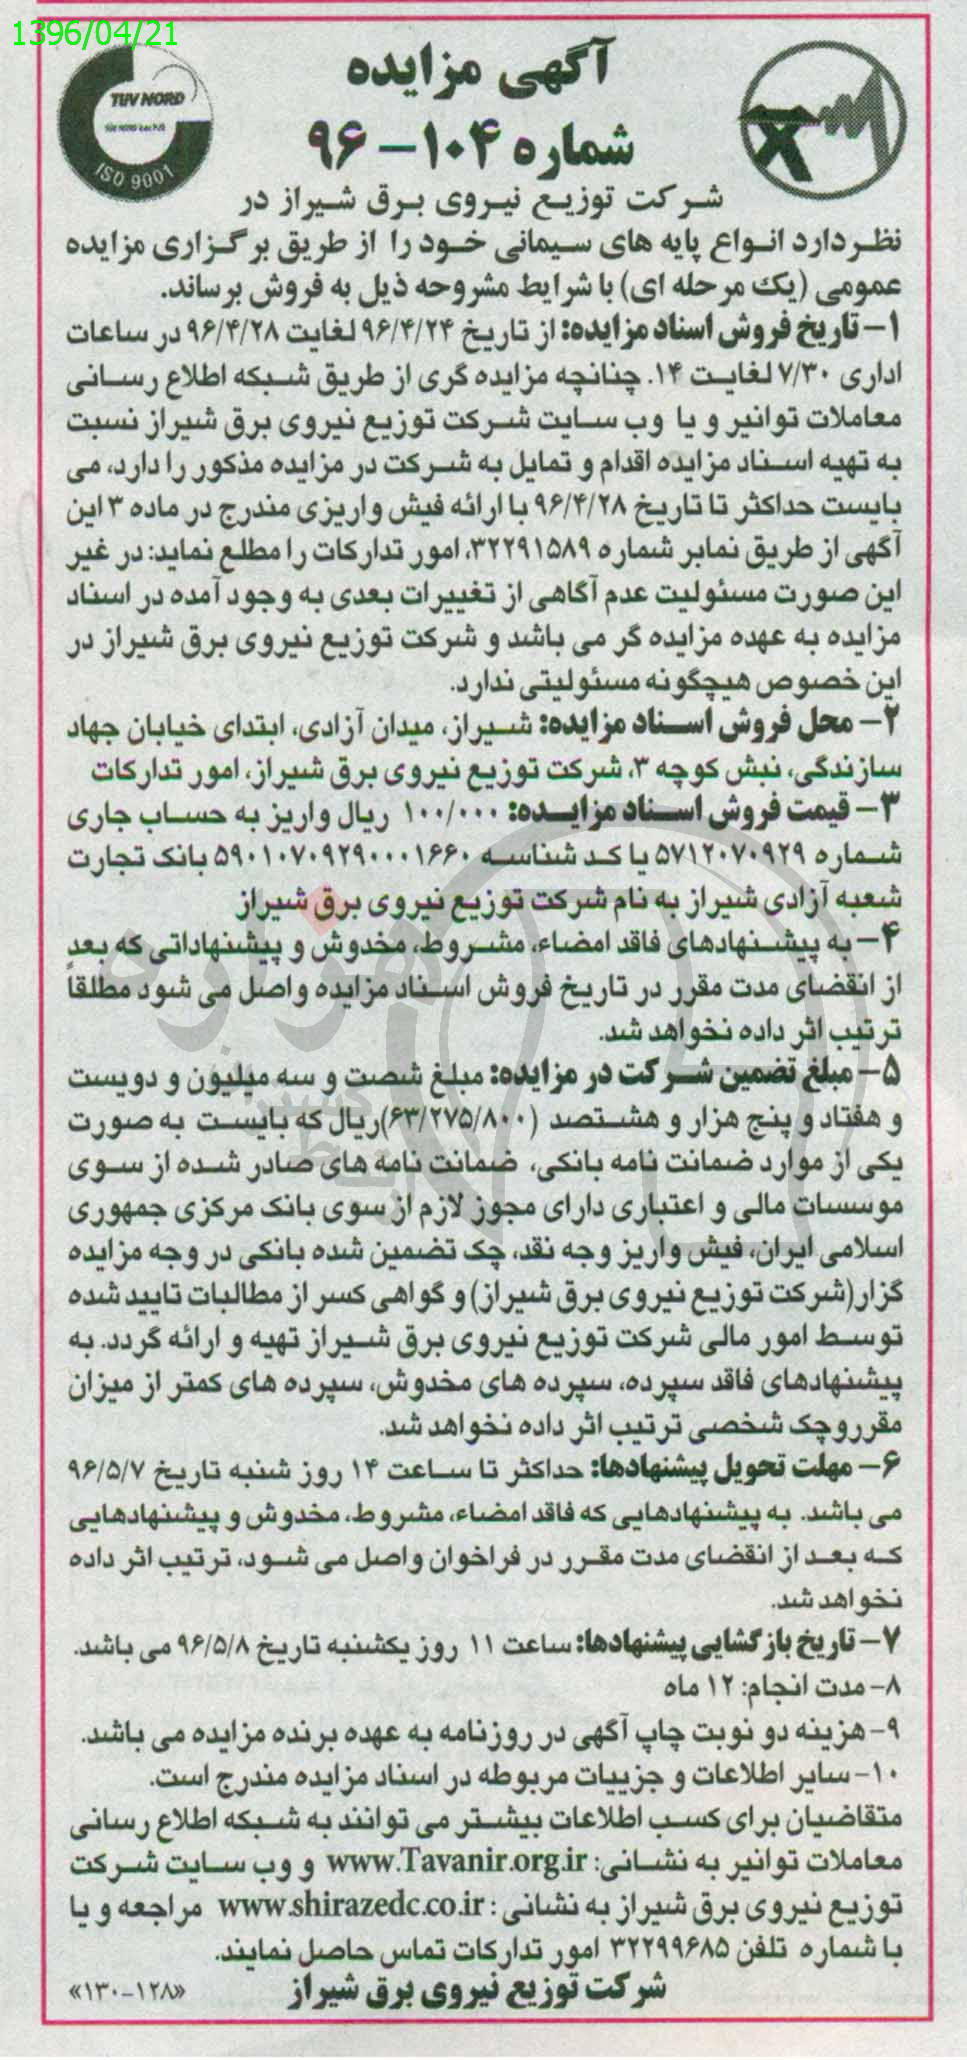 1396/04/21
آگهی مزایده
شماره ۱۰۴-۹۶
TUV NORD
ISO 9001
شرکت توزیع نیروی برق شیراز در
نظر دارد انواع پایه های سیمانی خود را از طریق برگزاری مزایده
عمومی (یک مرحله ای) با شرایط مشروحه ذیل به فروش برساند.
۱- تاریخ فروش اسناد مزایده: از تاریخ ۹۶/۴/۲۴ لغایت ۹۶/۴/۲۸ در ساعات
اداری ۷/۳۰ لغایت ۱۴. چنانچه مزایده گری از طریق شبکه اطلاع رسانی
معاملات توانیر و یا وب سایت شرکت توزیع نیروی برق شیراز نسبت
به تهیه اسناد مزایده اقدام و تمایل به شرکت در مزایده مذکور را دارد، می
بایست حداکثر تا تاریخ ۹۶/۴/۲۸ با ارائه فیش واریزی مندرج در ماده ۳ این
آگهی از طریق نمابر شماره ۳۲۲۹۱۵۸۹، امور تدارکات را مطلع نماید: در غیر
این صورت مسئولیت عدم آگاهی از تغییرات بعدی به وجود آمده در اسناد
مزایده به عهده مزایده گر می باشد و شرکت توزیع نیروی برق شیراز در
این خصوص هیچگونه مسئولیتی ندارد.
۲- محل فروش اسناد مزایده: شیراز، میدان آزادی، ابتدای خیابان جهاد
سازندگی، نبش کوچه ۳، شرکت توزیع نیروی برق شیراز، امور تدارکات
۳- قیمت فروش اسناد مزایده: ۱۰۰/۰۰۰ ریال واریز به حساب جاری
شماره ۵۷۱۲۰۷۰۹۲۹ یا کد شناسه ۵۹۰۱۰۷۰۹۲۹۰۰۰۱۶۶۰ بانک تجارت
شعبه آزادی شیراز به نام شرکت توزیع نیروی برق شیراز
۴- به پیشنهادهای فاقد امضاء، مشروط، مخدوش و پیشنهاداتی که بعد
از انقضای مدت مقرر در تاریخ فروش اسناد مزایده واصل می شود مطلقاً
ترتیب اثر داده نخواهد شد.
۵- مبلغ تضمین شرکت در مزایده: مبلغ شصت و سه میلیون و دویست
و هفتاد و پنج هزار و هشتصد (۶۳/۲۷۵/۸۰۰)ریال که بایست به صورت
یکی از موارد ضمانت نامه بانکی، ضمانت نامه های صادر شده از سوی
موسسات مالی و اعتباری دارای مجوز لازم از سوی بانک مرکزی جمهوری
اسلامی ایران، فیش واریز وجه نقد، چک تضمین شده بانکی در وجه مزایده
گزار(شرکت توزیع نیروی برق شیراز) و گواهی کسر از مطالبات تایید شده
توسط امور مالی شرکت توزیع نیروی برق شیراز تهیه و ارائه گردد. به
پیشنهادهای فاقد سپرده، سپرده های مخدوش، سپرده های کمتر از میزان
مقرر و چک شخصی ترتیب اثر داده نخواهد شد.
۶- مهلت تحویل پیشنهادها: حداکثر تا ساعت ۱۴ روز شنبه تاریخ ۹۶/۵/۷
می باشد. به پیشنهادهایی که فاقد امضاء، مشروط، مخدوش و پیشنهادهایی
که بعد از انقضای مدت مقرر در فراخوان واصل می شود، ترتیب اثر داده
نخواهد شد.
۷- تاریخ بازگشایی پیشنهادها: ساعت ۱۱ روز یکشنبه تاریخ ۹۶/۵/۸ می باشد.
۸- مدت انجام: ۱۲ ماه
۹- هزینه دو نوبت چاپ آگهی در روزنامه به عهده برنده مزایده می باشد.
۱۰- سایر اطلاعات و جزییات مربوطه در اسناد مزایده مندرج است.
متقاضیان برای کسب اطلاعات بیشتر می توانند به شبکه اطلاع رسانی
معاملات توانیر به نشانی: www.Tavanir.org.ir و وب سایت شرکت
توزیع نیروی برق شیراز به نشانی: www.shirazedc.co.ir مراجعه و یا
با شماره تلفن ۳۲۲۹۹۶۸۵ امور تدارکات تماس حاصل نمایند.
شرکت توزیع نیروی برق شیراز
«۱۳۰-۱۲۸»